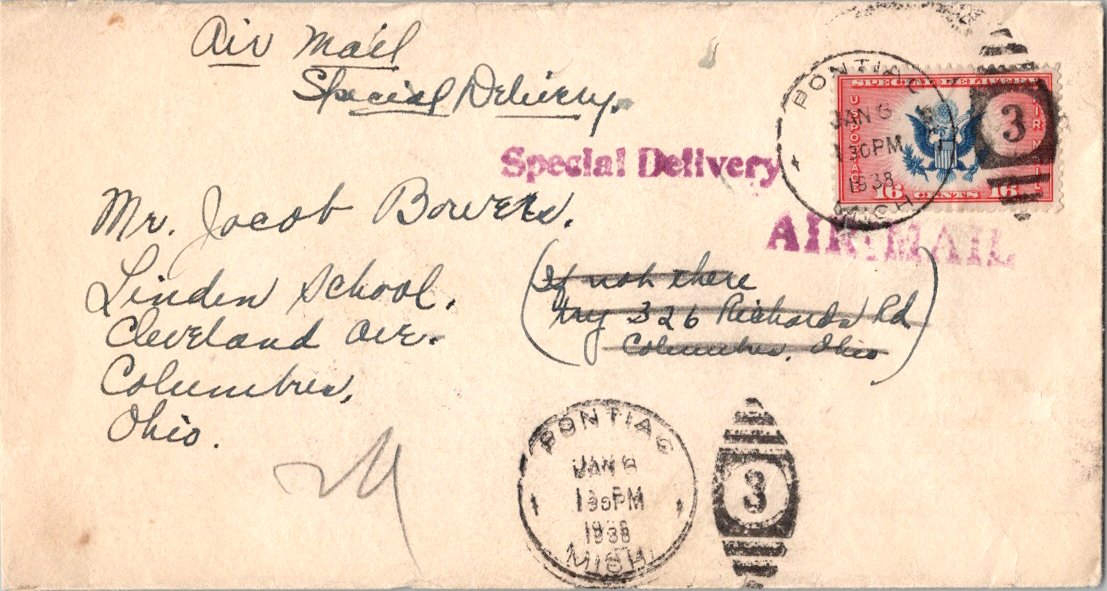 Air Mail
Special Delivery.
PONTIAC
JAN 6
30 PM
1938
MICH.
SPECIAL DELIVERY
16 CENTS 16
3
Special Delivery
AIR MAIL
Mr. Jacob Bowers.
Linden School.
Cleveland Ave.
Columbus,
Ohio.
(If not there
try 326 Richards Rd
Columbus, Ohio)
PONTIAC
JAN 6
1 30 PM
1938
MICH.
1
3